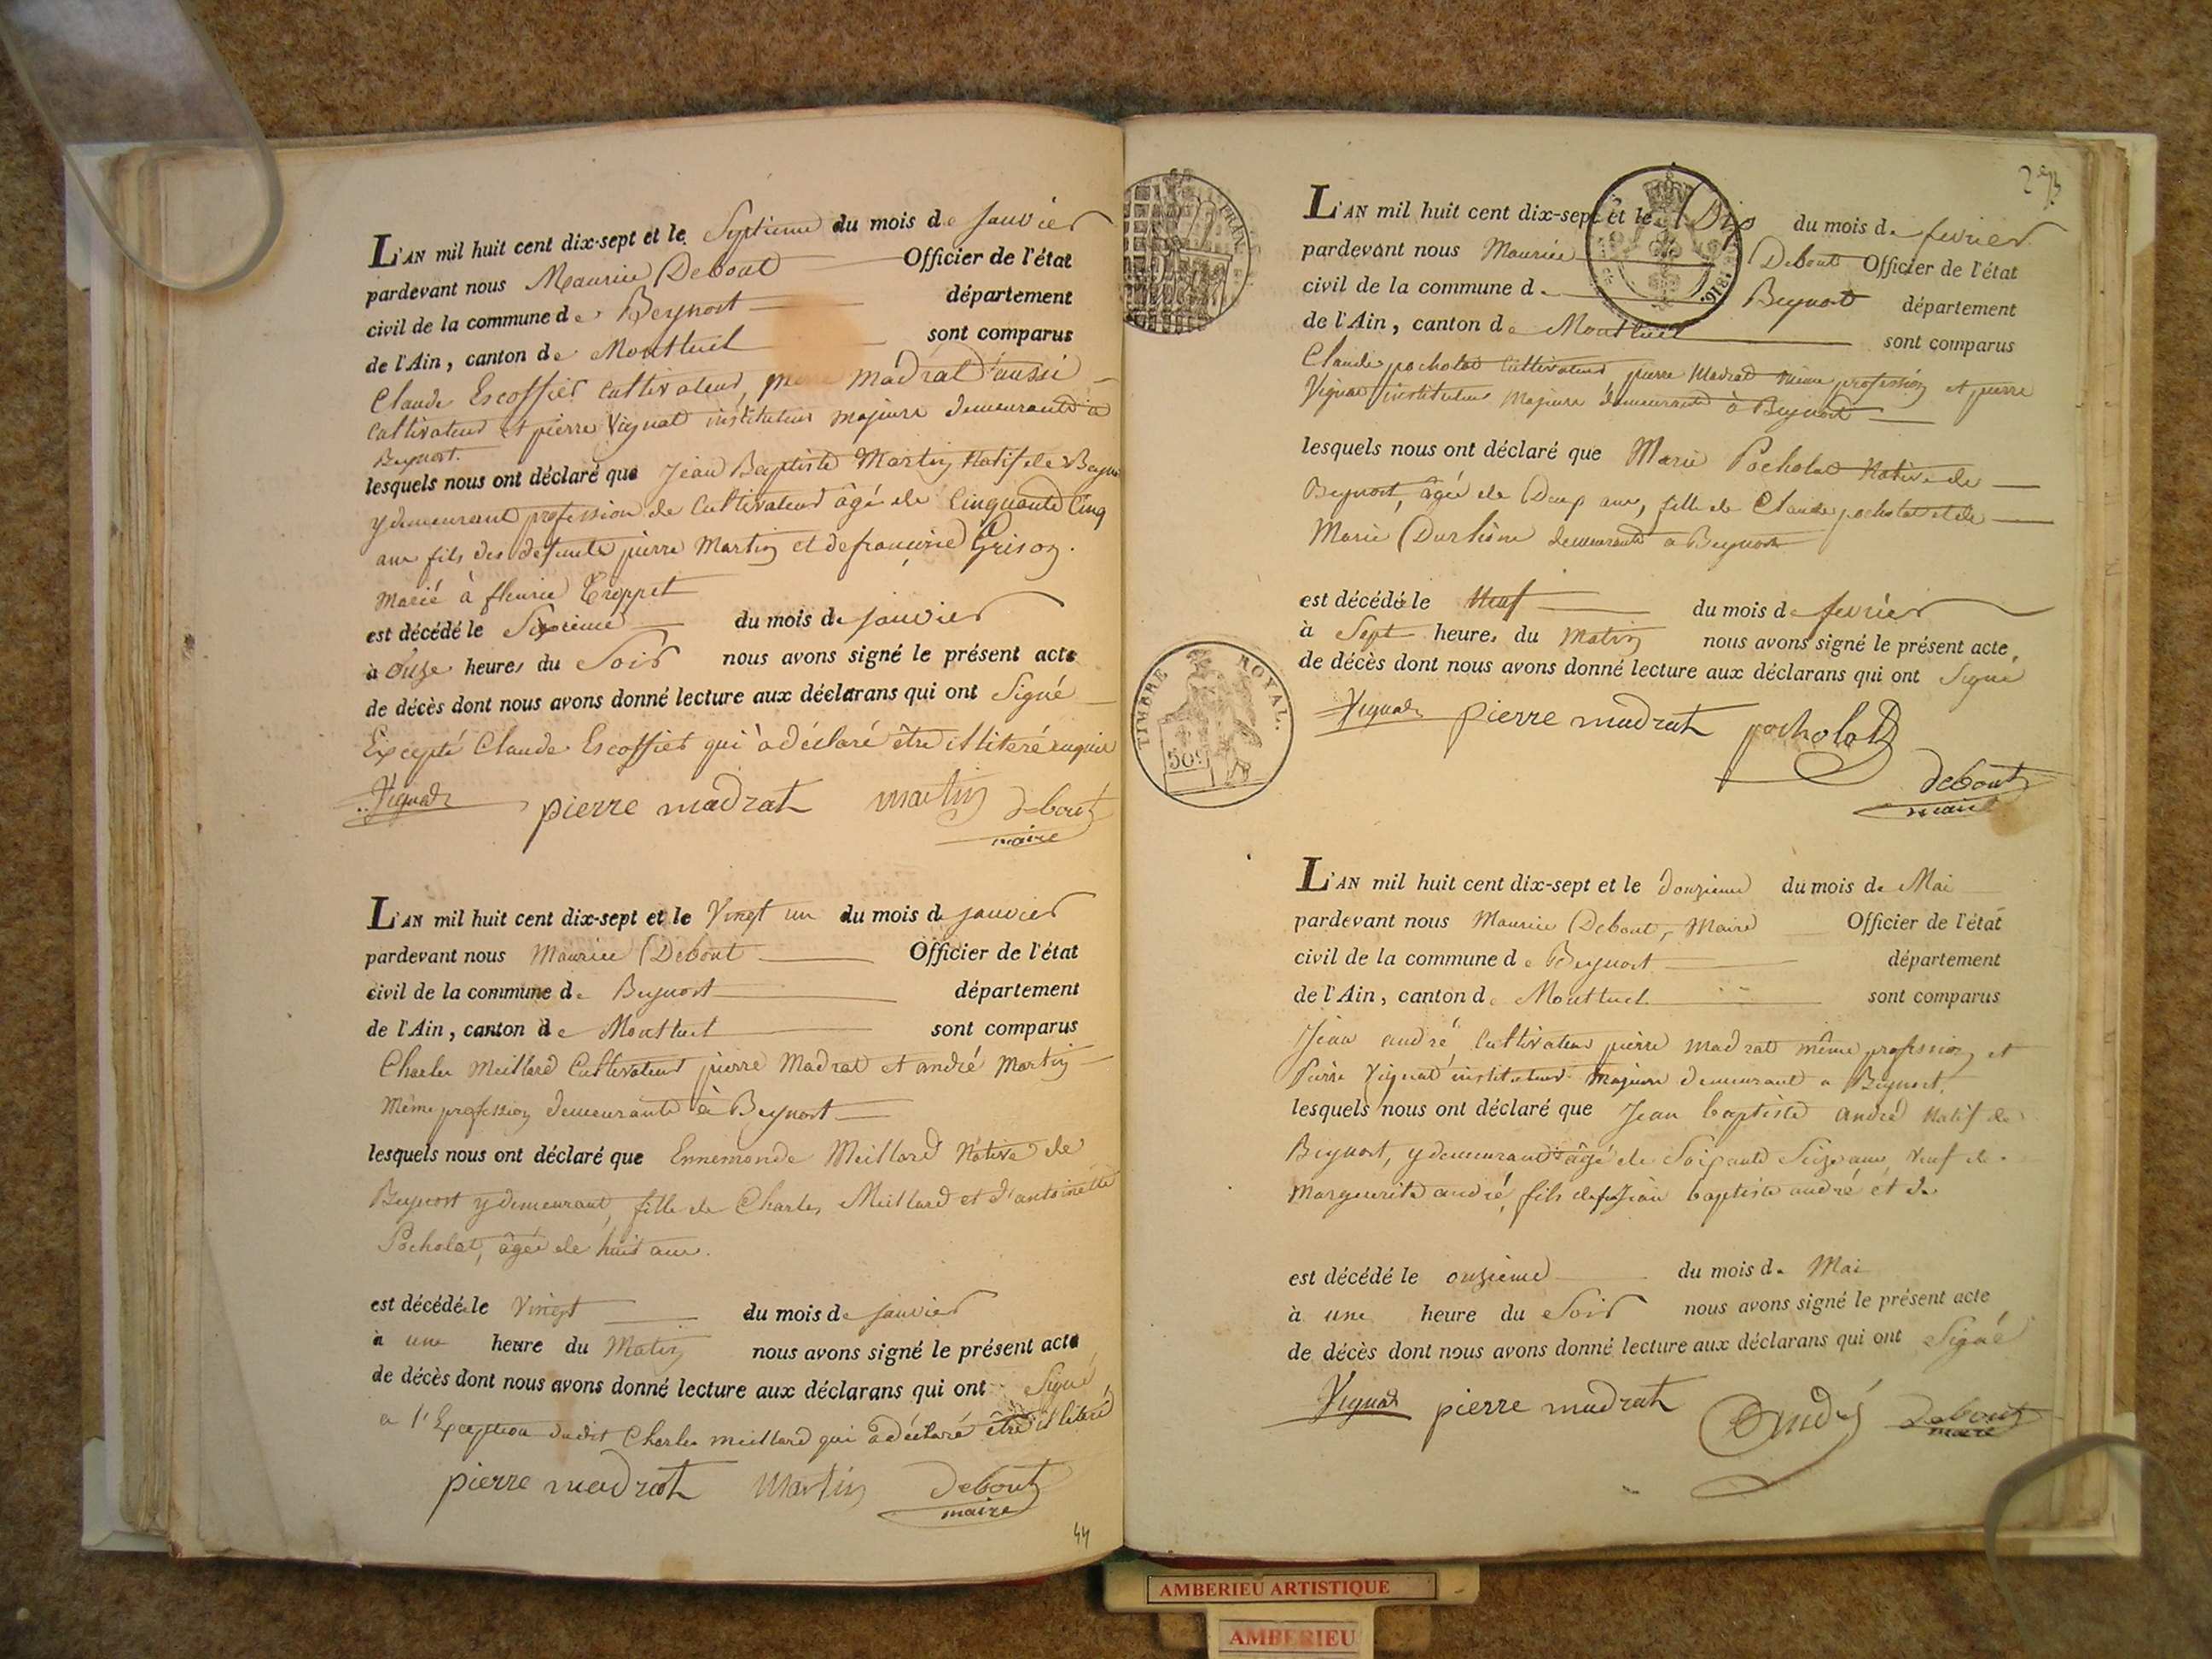 L'AN mil huit cent dix-sept et le Septieme du mois de Janvier
pardevant nous Maurice Debout Officier de l'état
civil de la commune de Beynost département
de l'Ain, canton de Montluel sont comparus
Claude Escoffier Cultivateur, pierre Madrat aussi
Cultivateur et pierre Vignat instituteur majeurs demeurants à
Beynost.
lesquels nous ont déclaré que Jean Baptiste Martin Natif de Beyno
y demeurant profession de Cultivateur âgé de Cinquante Cinq
ans fils des defunts pierre Martin et de françoise Grison.
Marié à fleurie Croppet
est décédé le Sixieme du mois de janvier
à Onze heures du Soir nous avons signé le présent acte
de décès dont nous avons donné lecture aux déclarans qui ont Signé
Excepté Claude Escoffier qui a déclaré être illiteré enquis
Vignat pierre madrat martin debout
maire
L'AN mil huit cent dix-sept et le Vingt un du mois de janvier
pardevant nous Maurice Debout Officier de l'état
civil de la commune de Beynost département
de l'Ain, canton de Montluel sont comparus
Charles Meillard Cultivateur pierre Madrat et andré Martin
Même profession demeurants à Beynost
lesquels nous ont déclaré que Ennemonde Meillard Native de
Beynost y demeurant, fille de Charles Meillard et d'antoinette
Pocholat, âgée de huit ans.
est décédé le Vingt du mois de janvier
à une heure du Matin nous avons signé le présent acte
de décès dont nous avons donné lecture aux déclarans qui ont Signé
a l'Exception dudit Charles meillard qui a déclaré être illiteré
pierre madrat Martin debout
maire
44
273
L'AN mil huit cent dix-sept et le Dix du mois de fevrier
pardevant nous Maurice Debout Officier de l'état
civil de la commune de Beynost département
de l'Ain, canton de Montluel sont comparus
Claude pocholat Cultivateur pierre Madrat même profession et pierre
Vignat instituteur Majeurs demeurants à Beynost
lesquels nous ont déclaré que Marie Pocholat Native de
Beynost, âgée de Deux ans, fille de Claude pocholat et de
Marie Durhône demeurants a Beynost
est décédé le Neuf du mois de fevrier
à Sept heures du Matin nous avons signé le présent acte
de décès dont nous avons donné lecture aux déclarans qui ont Signé
Vignat pierre madrat pocholat
debout
maire
1816.
TIMBRE ROYAL.
50c
L'AN mil huit cent dix-sept et le douzieme du mois de Mai
pardevant nous Maurice Debout, Maire Officier de l'état
civil de la commune de Beynost département
de l'Ain, canton de Montluel sont comparus
Jean andré Cultivateur pierre Madrat même profession et
Pierre Vignat instituteur Majeurs demeurant a Beynost.
lesquels nous ont déclaré que Jean baptiste andré Natif de
Beynost, y demeurant âgé de Soixante Seize ans, veuf de
Marguerite andré, fils de feu Jean baptiste andré et de
est décédé le onzieme du mois de Mai
à une heure du Soir nous avons signé le présent acte
de décès dont nous avons donné lecture aux déclarans qui ont Signé
Vignat pierre madrat andré debout
maire
AMBERIEU ARTISTIQUE
AMBERIEU